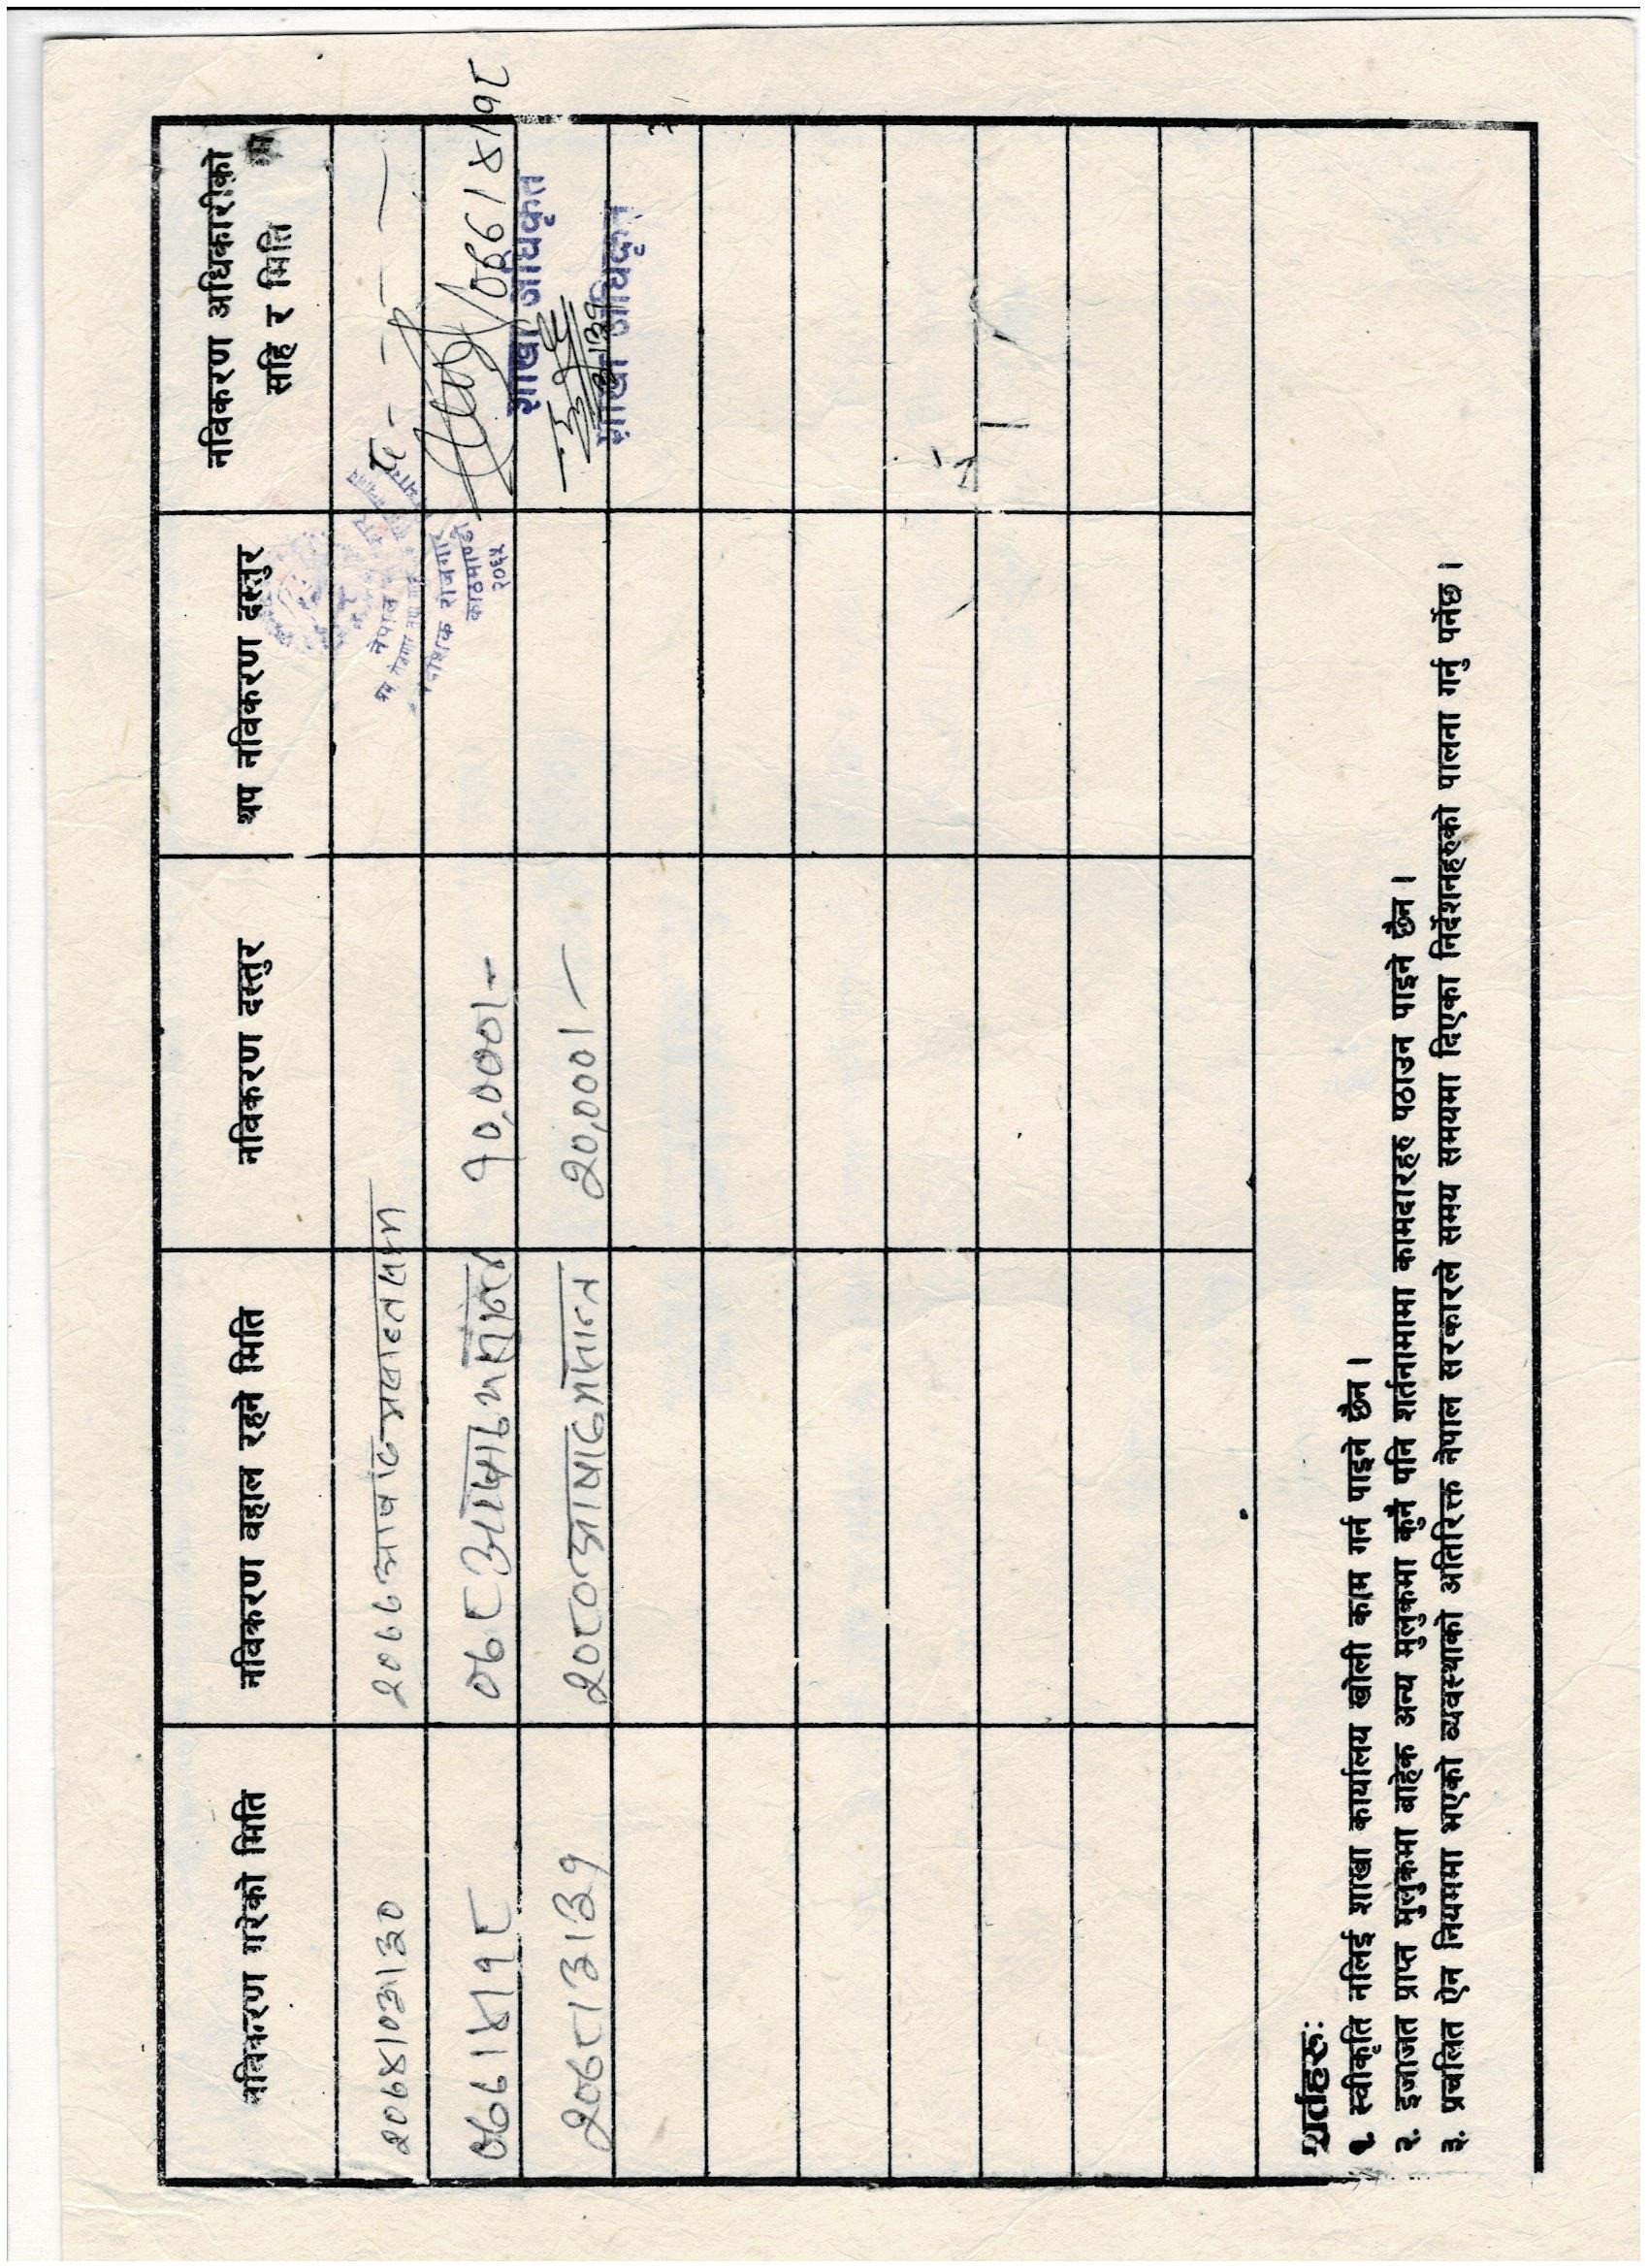 नविकरण गरेको मिति नविकरण वहाल रहने मिति नविकरण दस्तुर थप नविकरण दस्तुर नविकरण अधिकारीको
सहि र मिति
२०६५।०३।३० २०६६ आषाढ मसान्त सम्म द - - - -
०६६।४।१८ ०६८ आषाढ मसान्त १०,०००।- ०६६।४।१८
शाखा अधिकृत
२०६८।३।३१ २०८० आषाढ मसान्त २०,०००।- ३।३१
शाखा अधिकृत
नेपाल
वैदेशिक रोजगार विभाग
काठमाण्डौ
२०६५
शर्तहरु:
१. स्वीकृति नलिई शाखा कार्यालय खोली काम गर्न पाइने छैन ।
२. इजाजत प्राप्त मुलुकमा बाहेक अन्य मुलुकमा कुनै पनि शर्तनामामा कामदारहरु पठाउन पाइने छैन ।
३. प्रचलित ऐन नियममा भएको व्यवस्थाको अतिरिक्त नेपाल सरकारले समय समयमा दिएका निर्देशनहरुको पालना गर्नु पर्नेछ ।